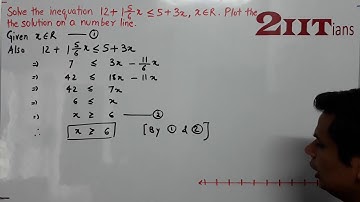 Solve the inequation 12 + 1 5/6 x ≤ 5 + 3x, x ∈ R. Plot the
the solution on a number line.
2IITians
Given x ∈ R —— ①
Also 12 + 1 5/6 x ≤ 5 + 3x
⇒ 7 ≤ 3x - 11/6 x
⇒ 42 ≤ 18x - 11x
⇒ 42 ≤ 7x
⇒ 6 ≤ x
⇒ x ≥ 6 —— ②
∴ x ≥ 6 [By ① & ②]